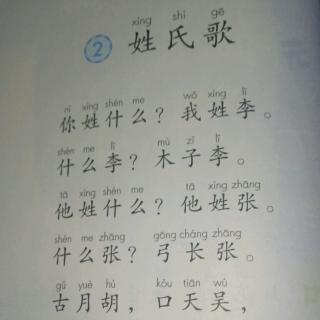 xìng shì gē
2 姓氏歌
nǐ xìng shén me wǒ xìng lǐ
你姓什么？我姓李。
shén me lǐ mù zǐ lǐ
什么李？木子李。
tā xìng shén me tā xìng zhāng
他姓什么？他姓张。
shén me zhāng gōng cháng zhāng
什么张？弓长张。
gǔ yuè hú kǒu tiān wú
古月胡，口天吴，